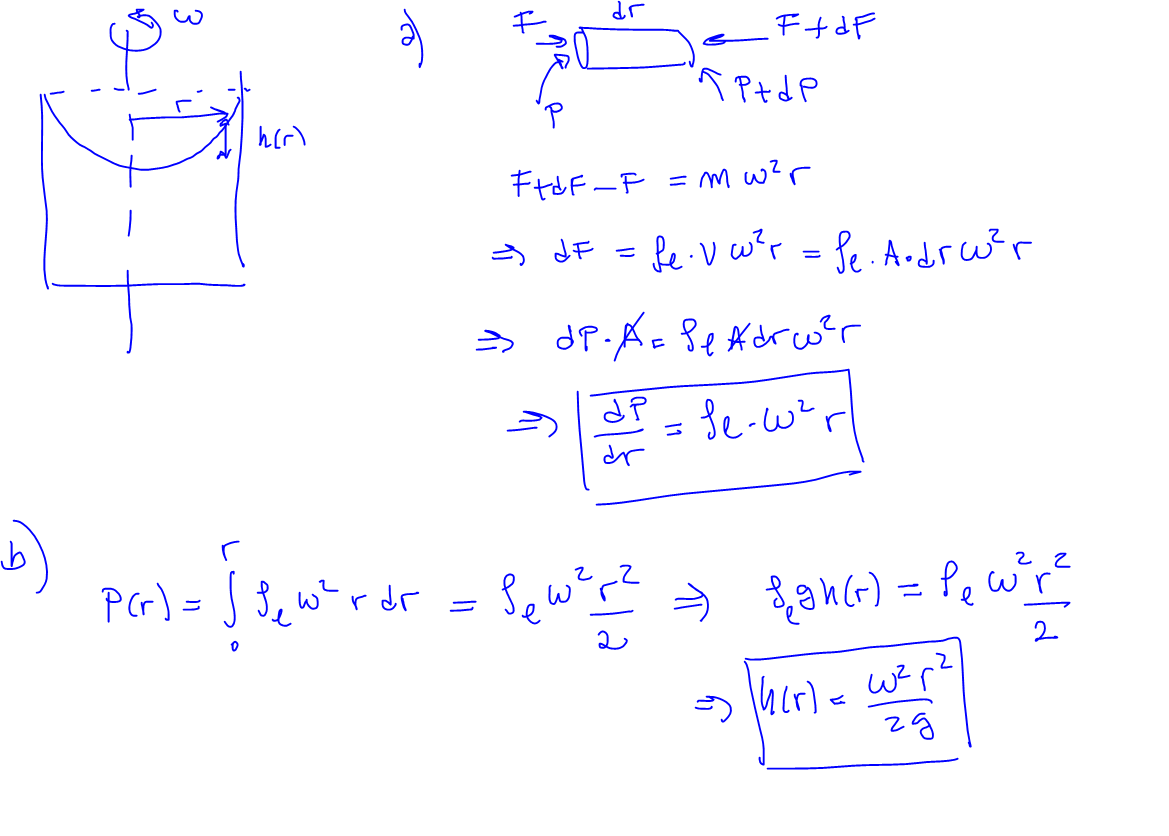 ω
r
h(r)
a)
dr
F
F+dF
P
P+dP
F+dF-F = mω²r
⇒ dF = ρe·V ω²r = ρe·A·dr ω²r
⇒ dP·A = ρe A dr ω²r
⇒ dP/dr = ρe·ω² r
b)
P(r) = ∫₀ʳ ρe ω² r dr = ρe ω² r²/2 ⇒ ρe g h(r) = ρe ω² r²/2
⇒ h(r) = ω² r²/2g